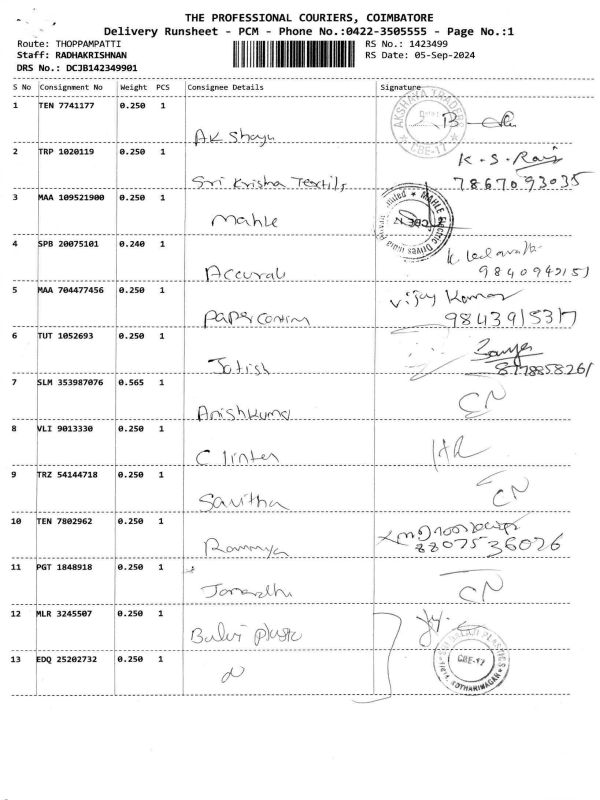 THE PROFESSIONAL COURIERS, COIMBATORE
Delivery Runsheet - PCM - Phone No.:0422-3505555 - Page No.:1
Route: THOPPAMPATTI RS No.: 1423499
Staff: RADHAKRISHNAN RS Date: 05-Sep-2024
DRS No.: DCJB142349901
S No Consignment No Weight PCS Consignee Details Signature
1 TEN 7741177 0.250 1
AKSHAYA TRADER
CBE-17
Akshaya
2 TRP 1020119 0.250 1 K.S.Raj
Sri Krisha Textils 7867093035
3 MAA 109521900 0.250 1
MAHLE Electric Drives India
Mahle
4 SPB 20075101 0.240 1
Accurate
5 MAA 704477456 0.250 1 Vijay Kumar
9843915317
6 TUT 1052693 0.250 1
Jotish
7 SLM 353987076 0.565 1 CN
Anishkuma
8 VLI 9013330 0.250 1
C linter
9 TRZ 54144718 0.250 1 CN
Savitha
10 TEN 7802962 0.250 1
Rammya 8807536026
11 PGT 1848918 0.250 1 CN
12 MLR 3245507 0.250 1
13 EDQ 25202732 0.250 1 CBE-17
KOTHARINAGAR